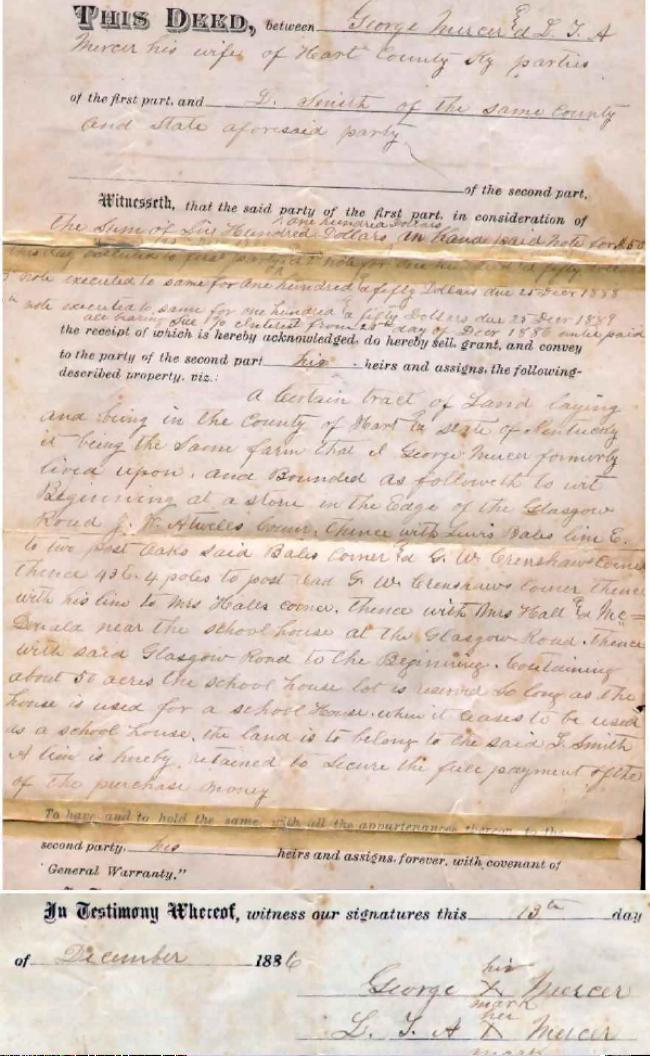 THIS DEED, between George Mercer & L. T. A
Mercer his wife of Hart County Ky parties
of the first part, and L. Smith of the same County
and State aforesaid party
of the second part,
Witnesseth, that the said party of the first part, in consideration of
one hundred Dollars
the Sum of Six Hundred Dollars in hand paid note for $50
this day executed to first party & note for one hundred & fifty
note executed to same for one hundred & fifty Dollars due 25 Decr 1888
note executed to same for one hundred & fifty Dollars due 25 Decr 1889
all baring Six % Interest from 25th day of Decr 1886 until paid
the receipt of which is hereby acknowledged, do hereby sell, grant, and convey
to the party of the second part his heirs and assigns, the following-
described property, viz.:
A Certain tract of Land laying
and being in the County of Hart & State of Kentucky
it being the Same farm that I George Mercer formerly
lived upon, and Bounded as followeth to wit
Beginning at a stone in the Edge of the Glasgow
Road J. W. Atwells Corner, thence with Lewis Bales line E.
to two post oaks said Bales Corner & G. W. Crenshaws Corner
thence 43 E. 4 poles to post oak G. W. Crenshaws Corner thence
with his line to Mrs Halls corner, thence with Mrs Hall & Mc=
Donald near the school house at the Glasgow Road, thence
with said Glasgow Road to the Beginning. Containing
about 50 acres the school house lot is reserved So long as the
house is used for a school House, when it ceases to be used
as a school house, the land is to belong to the said L. Smith
A lien is hereby retained to secure the full payment of the
of the purchase money
To have and to hold the same, with all the appurtenances thereon, to the
second party, his heirs and assigns, forever, with covenant of
"General Warranty."
In Testimony Whereof, witness our signatures this 13th day
of December 1886
his
George X Mercer
mark
her
L. T. A X Mercer
mark